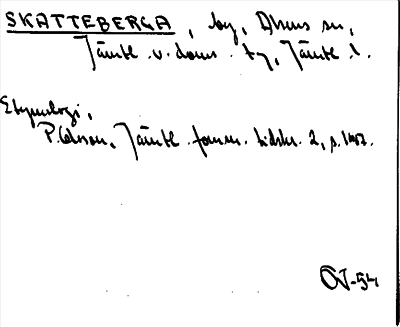 SKATTEBERGA, by, Alsens sn,
Jämtl. v. doms. tg, Jämtl. l.
Etymologi,
P. Olsson, Jämtl. fornm. tidskr. 2, s. 147.
OJ-54